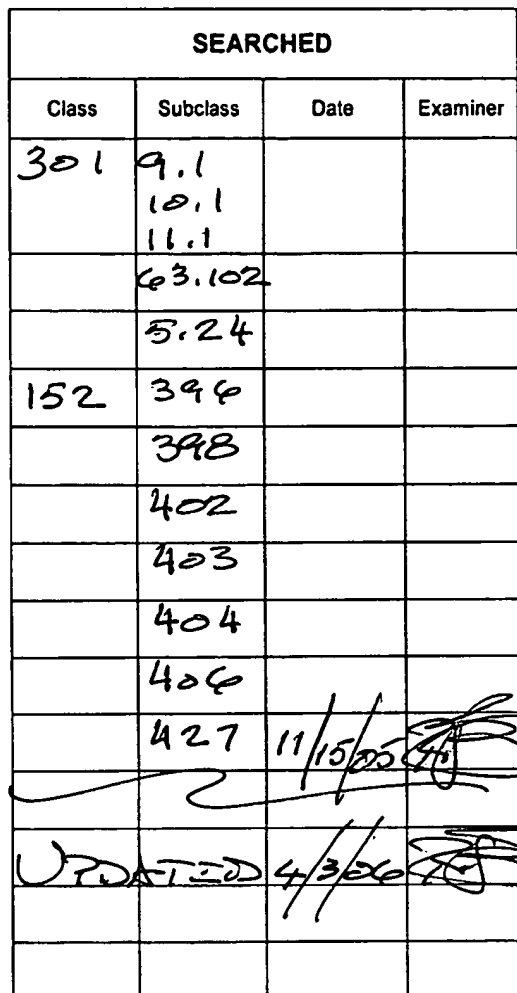 SEARCHED
Class Subclass Date Examiner
301 9.1
10.1
11.1
63.102
5.24
152 396
398
402
403
404
406
427 11/15/05
UPDATED 4/3/06